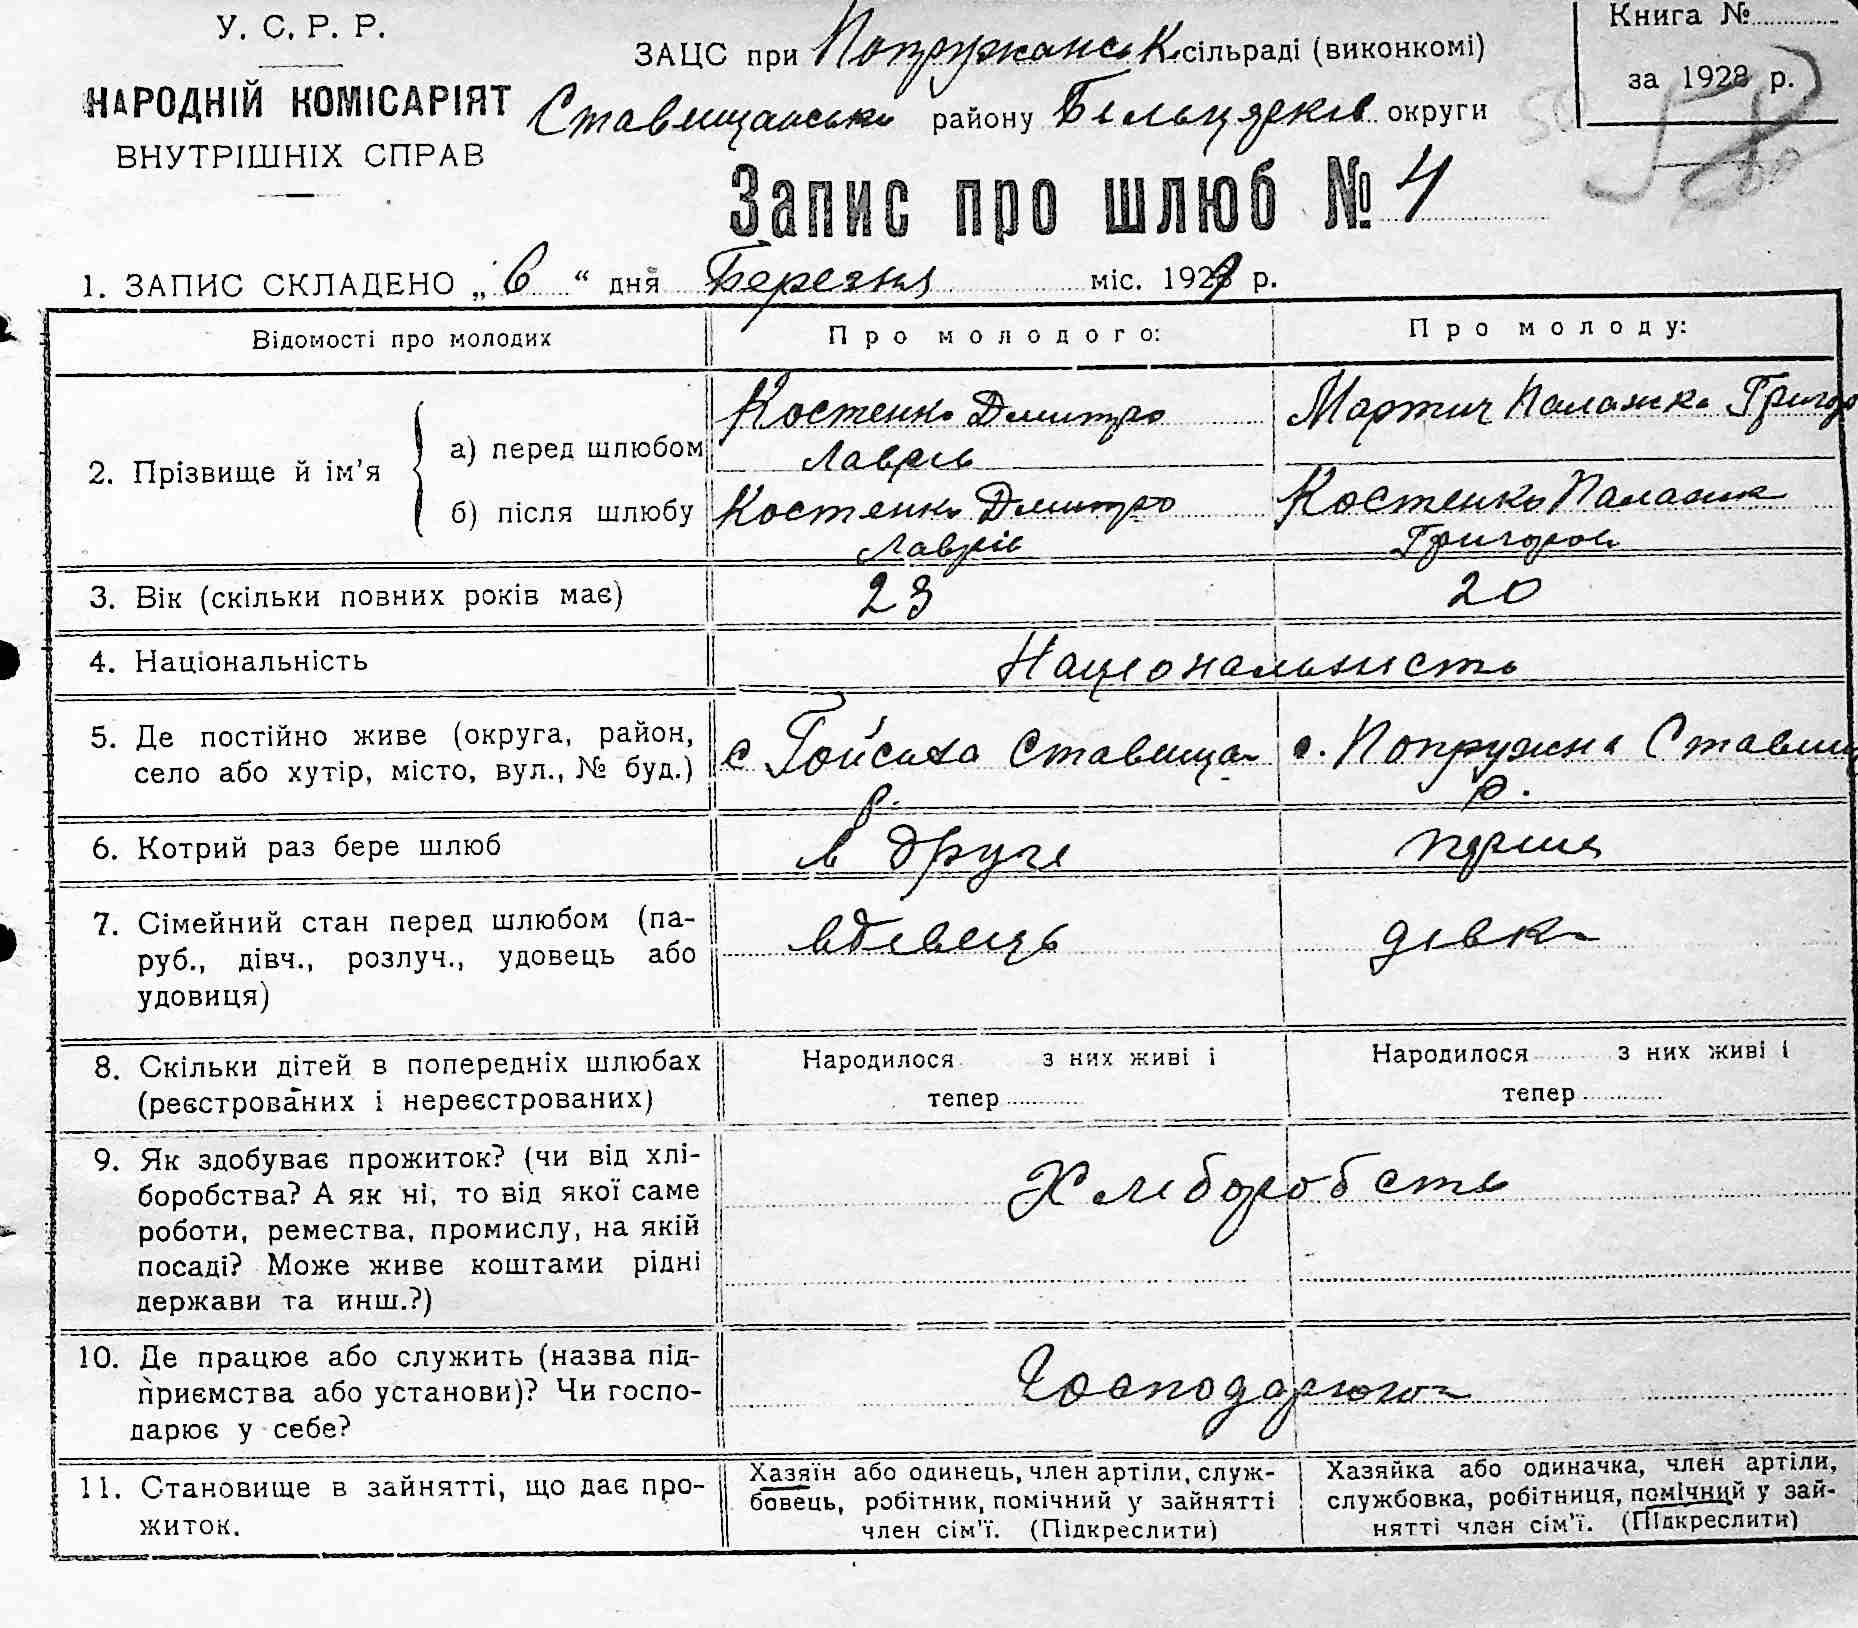 У. С. Р. Р.
НАРОДНІЙ КОМІСАРІЯТ
ВНУТРІШНІХ СПРАВ
ЗАЦС при Попружанск сільраді (виконкомі)
Ставищансько району округи
Книга №
за 1928 р.
58
Запис про шлюб № 4
1. ЗАПИС СКЛАДЕНО „ 6 “ дня Березня міс. 1929 р.
Відомості про молодих
Про молодого:
Про молоду:
2. Прізвище й ім’я
а) перед шлюбом
Костенко Дмитро
Лаврів
Мартич Палажка Григор
б) після шлюбу
Костенко Дмитро
Лаврів
Костенко Палажк
Григоров
3. Вік (скільки повних років має)
23
20
4. Національність
Національнисть
5. Де постійно живе (округа, район,
село або хутір, місто, вул., № буд.)
с Гойсиха Ставища
р.
с. Попружна Ставищ
р.
6. Котрий раз бере шлюб
в друге
перше
7. Сімейний стан перед шлюбом (па-
руб., дівч., розлуч., удовець або
удовиця)
вдівець
дівка
8. Скільки дітей в попередніх шлюбах
(реєстрованих і нереєстрованих)
Народилося з них живі і
тепер
Народилося з них живі і
тепер
9. Як здобуває прожиток? (чи від хлі-
боробства? А як ні, то від якої саме
роботи, ремества, промислу, на якій
посаді? Може живе коштами рідні
держави та инш.?)
Хліборобств
10. Де працює або служить (назва під-
приємства або установи)? Чи госпо-
дарює у себе?
Господарюют
11. Становище в зайнятті, що дає про-
житок.
Хазяїн або одинець, член артіли, служ-
бовець, робітник, помічний у зайнятті
член сім’ї. (Підкреслити)
Хазяйка або одиначка, член артіли,
службовка, робітниця, помічний у зай-
нятті член сім’ї. (Підкреслити)